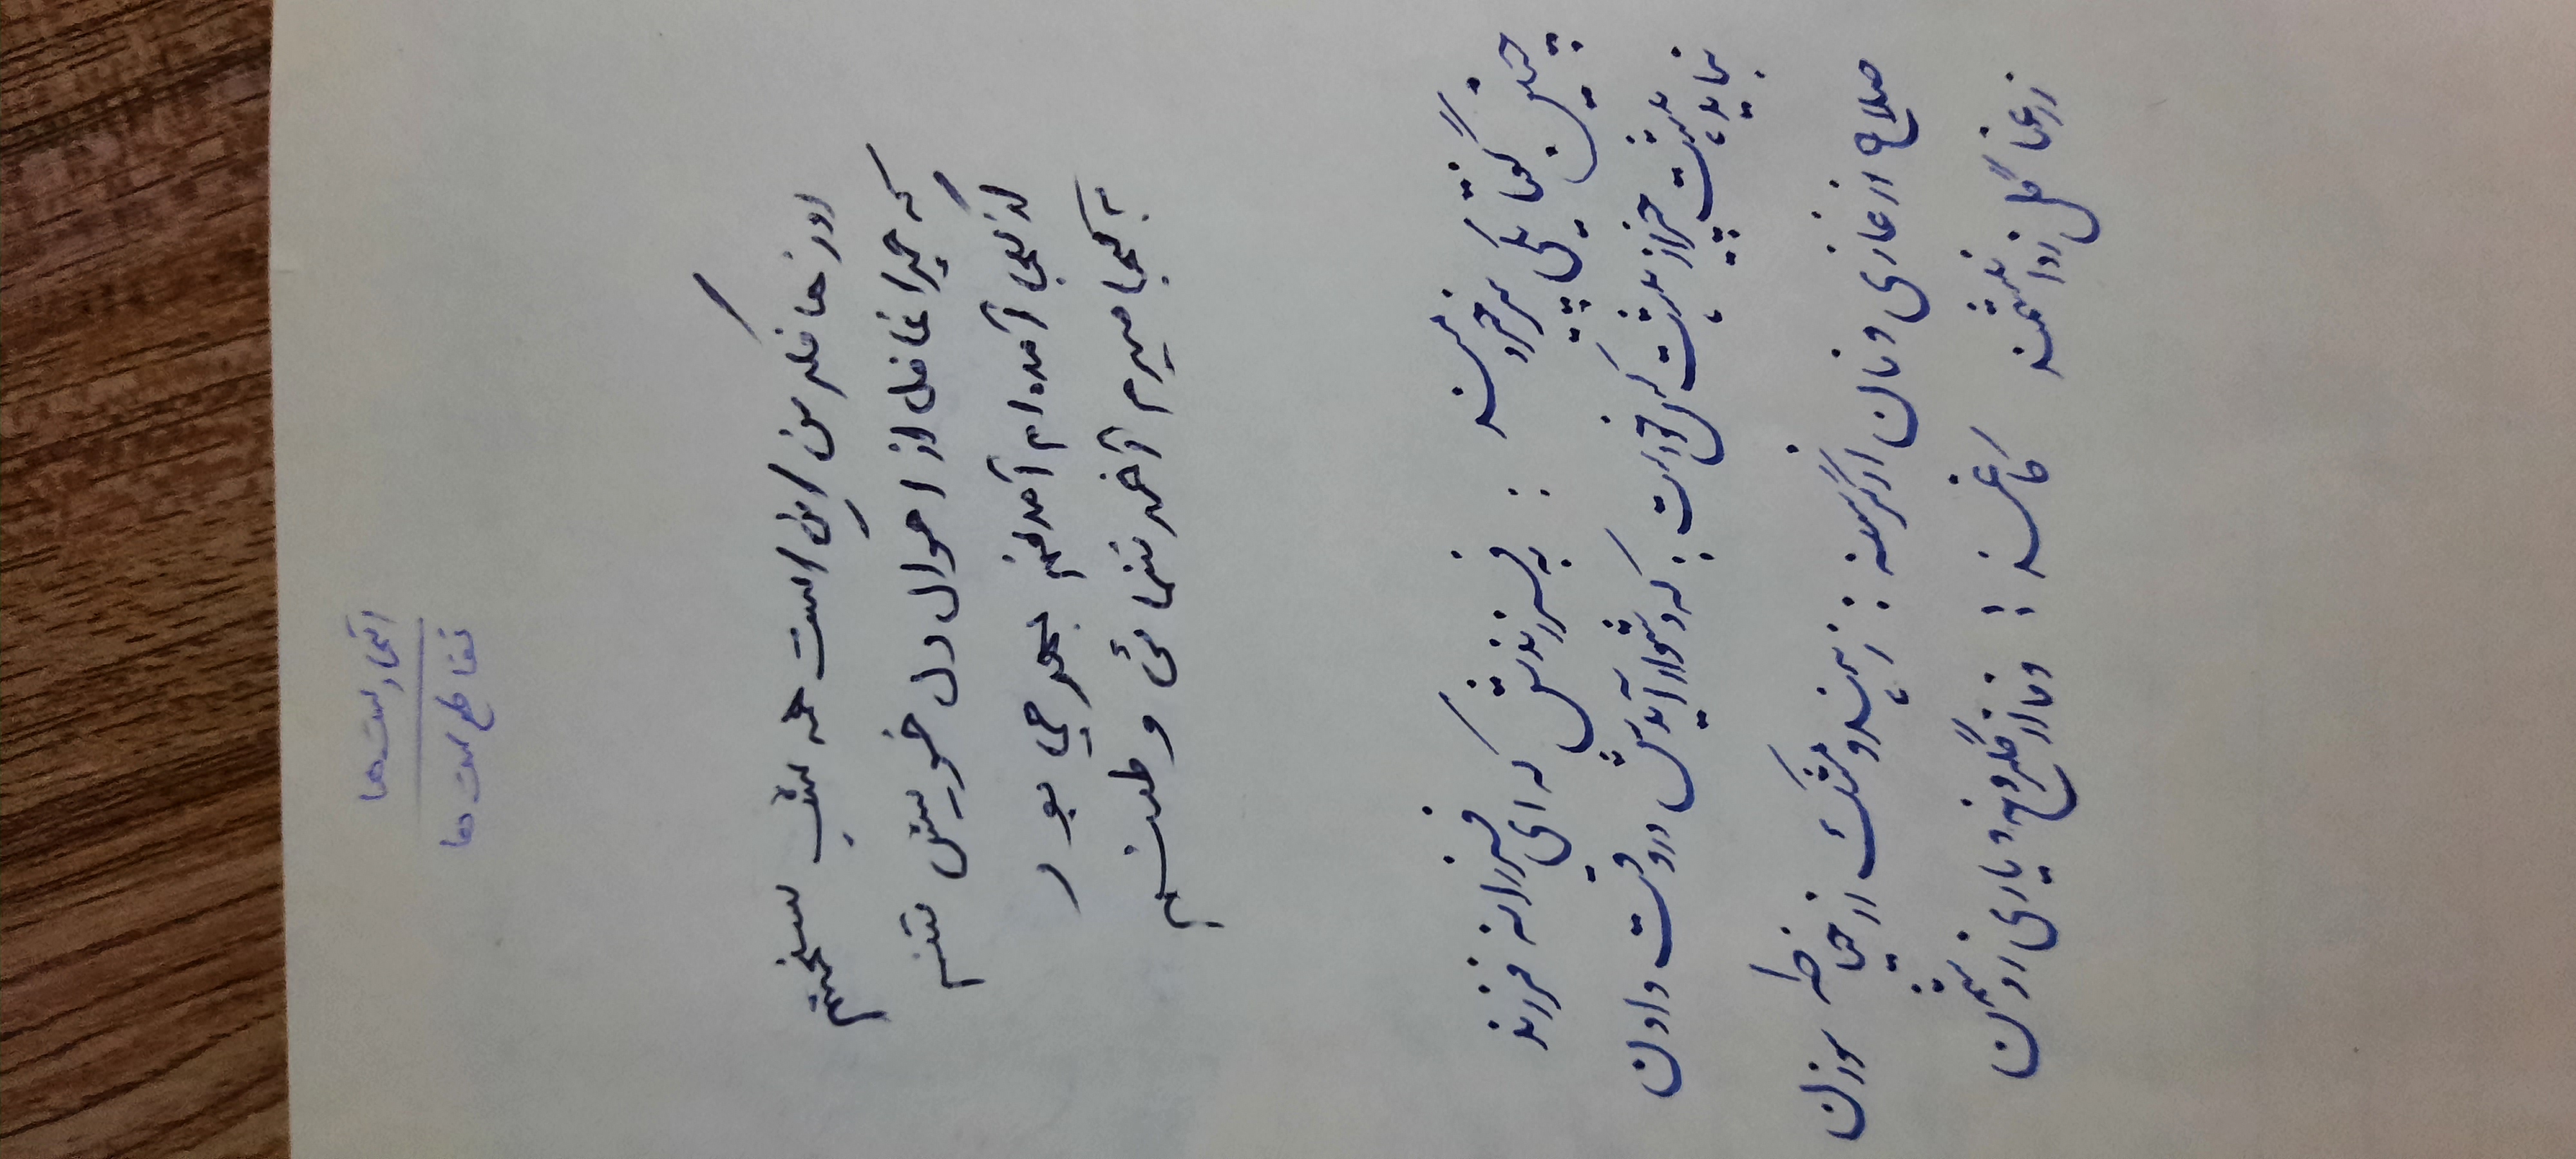 اتحاد ست‌ها
تقاطع ست‌ها
روزها فکر من این است همه شب سخنم
که چرا غافل از احوال دل خویشتنم
از کجا آمده ام آمدنم بهر چی بود
به کجا میرم آخر ننمائی وطنم
چنین گفتا یکی پیر خردمند : به فرزندش که ای فرزانه فرزند
نباید پشت چیز از پشت کس خواست : که دشوار آیدش در وقت دادن
صلاح از غازی و نان از گرسنه : ز هندو مشک از خیاطه سوزن
ز رعنا گل ز دانشمند کاغذ : وفا از گلرخ و یاری ز دشمن